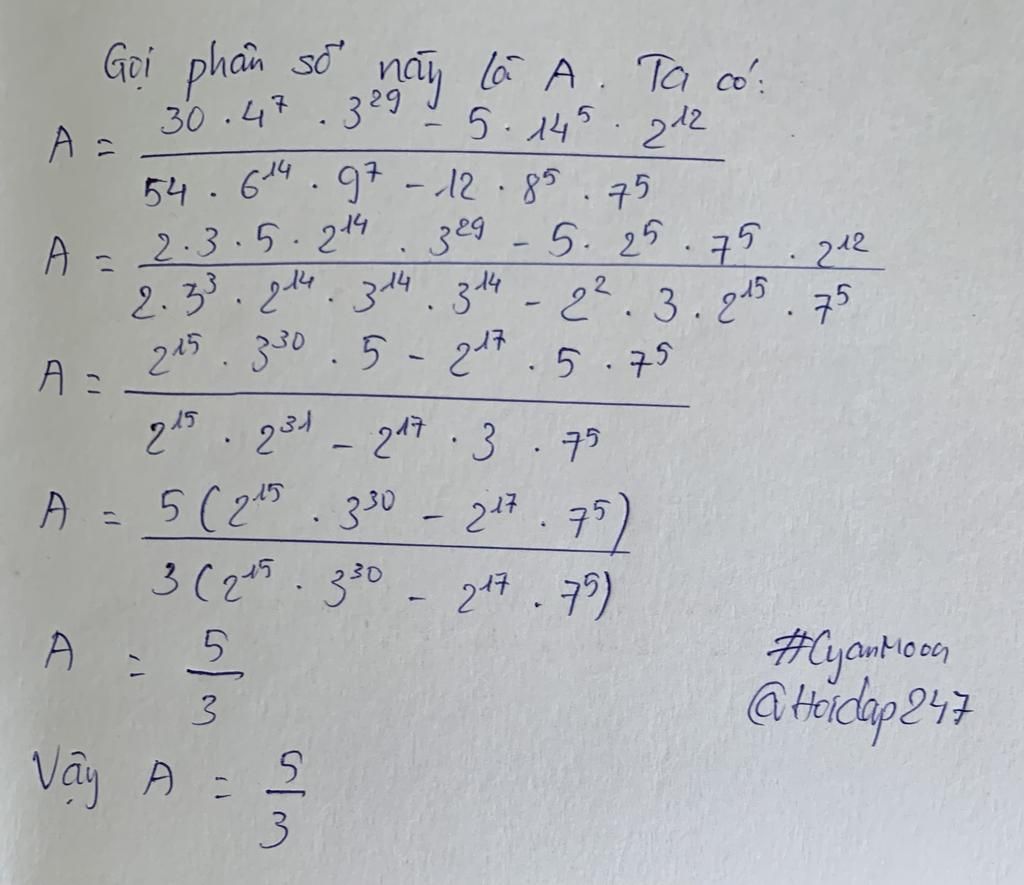 Gọi phân số này là A. Ta có:
A = \frac{30 \cdot 4^7 \cdot 3^{29} - 5 \cdot 14^5 \cdot 2^{12}}{54 \cdot 6^{14} \cdot 9^7 - 12 \cdot 8^5 \cdot 7^5}
A = \frac{2 \cdot 3 \cdot 5 \cdot 2^{14} \cdot 3^{29} - 5 \cdot 2^5 \cdot 7^5 \cdot 2^{12}}{2 \cdot 3^3 \cdot 2^{14} \cdot 3^{14} \cdot 3^{14} - 2^2 \cdot 3 \cdot 2^{15} \cdot 7^5}
A = \frac{2^{15} \cdot 3^{30} \cdot 5 - 2^{17} \cdot 5 \cdot 7^5}{2^{15} \cdot 2^{31} - 2^{17} \cdot 3 \cdot 7^5}
A = \frac{5(2^{15} \cdot 3^{30} - 2^{17} \cdot 7^5)}{3(2^{15} \cdot 3^{30} - 2^{17} \cdot 7^5)}
A = \frac{5}{3}
#CyanMoon
@Hoidap247
Vậy A = \frac{5}{3}